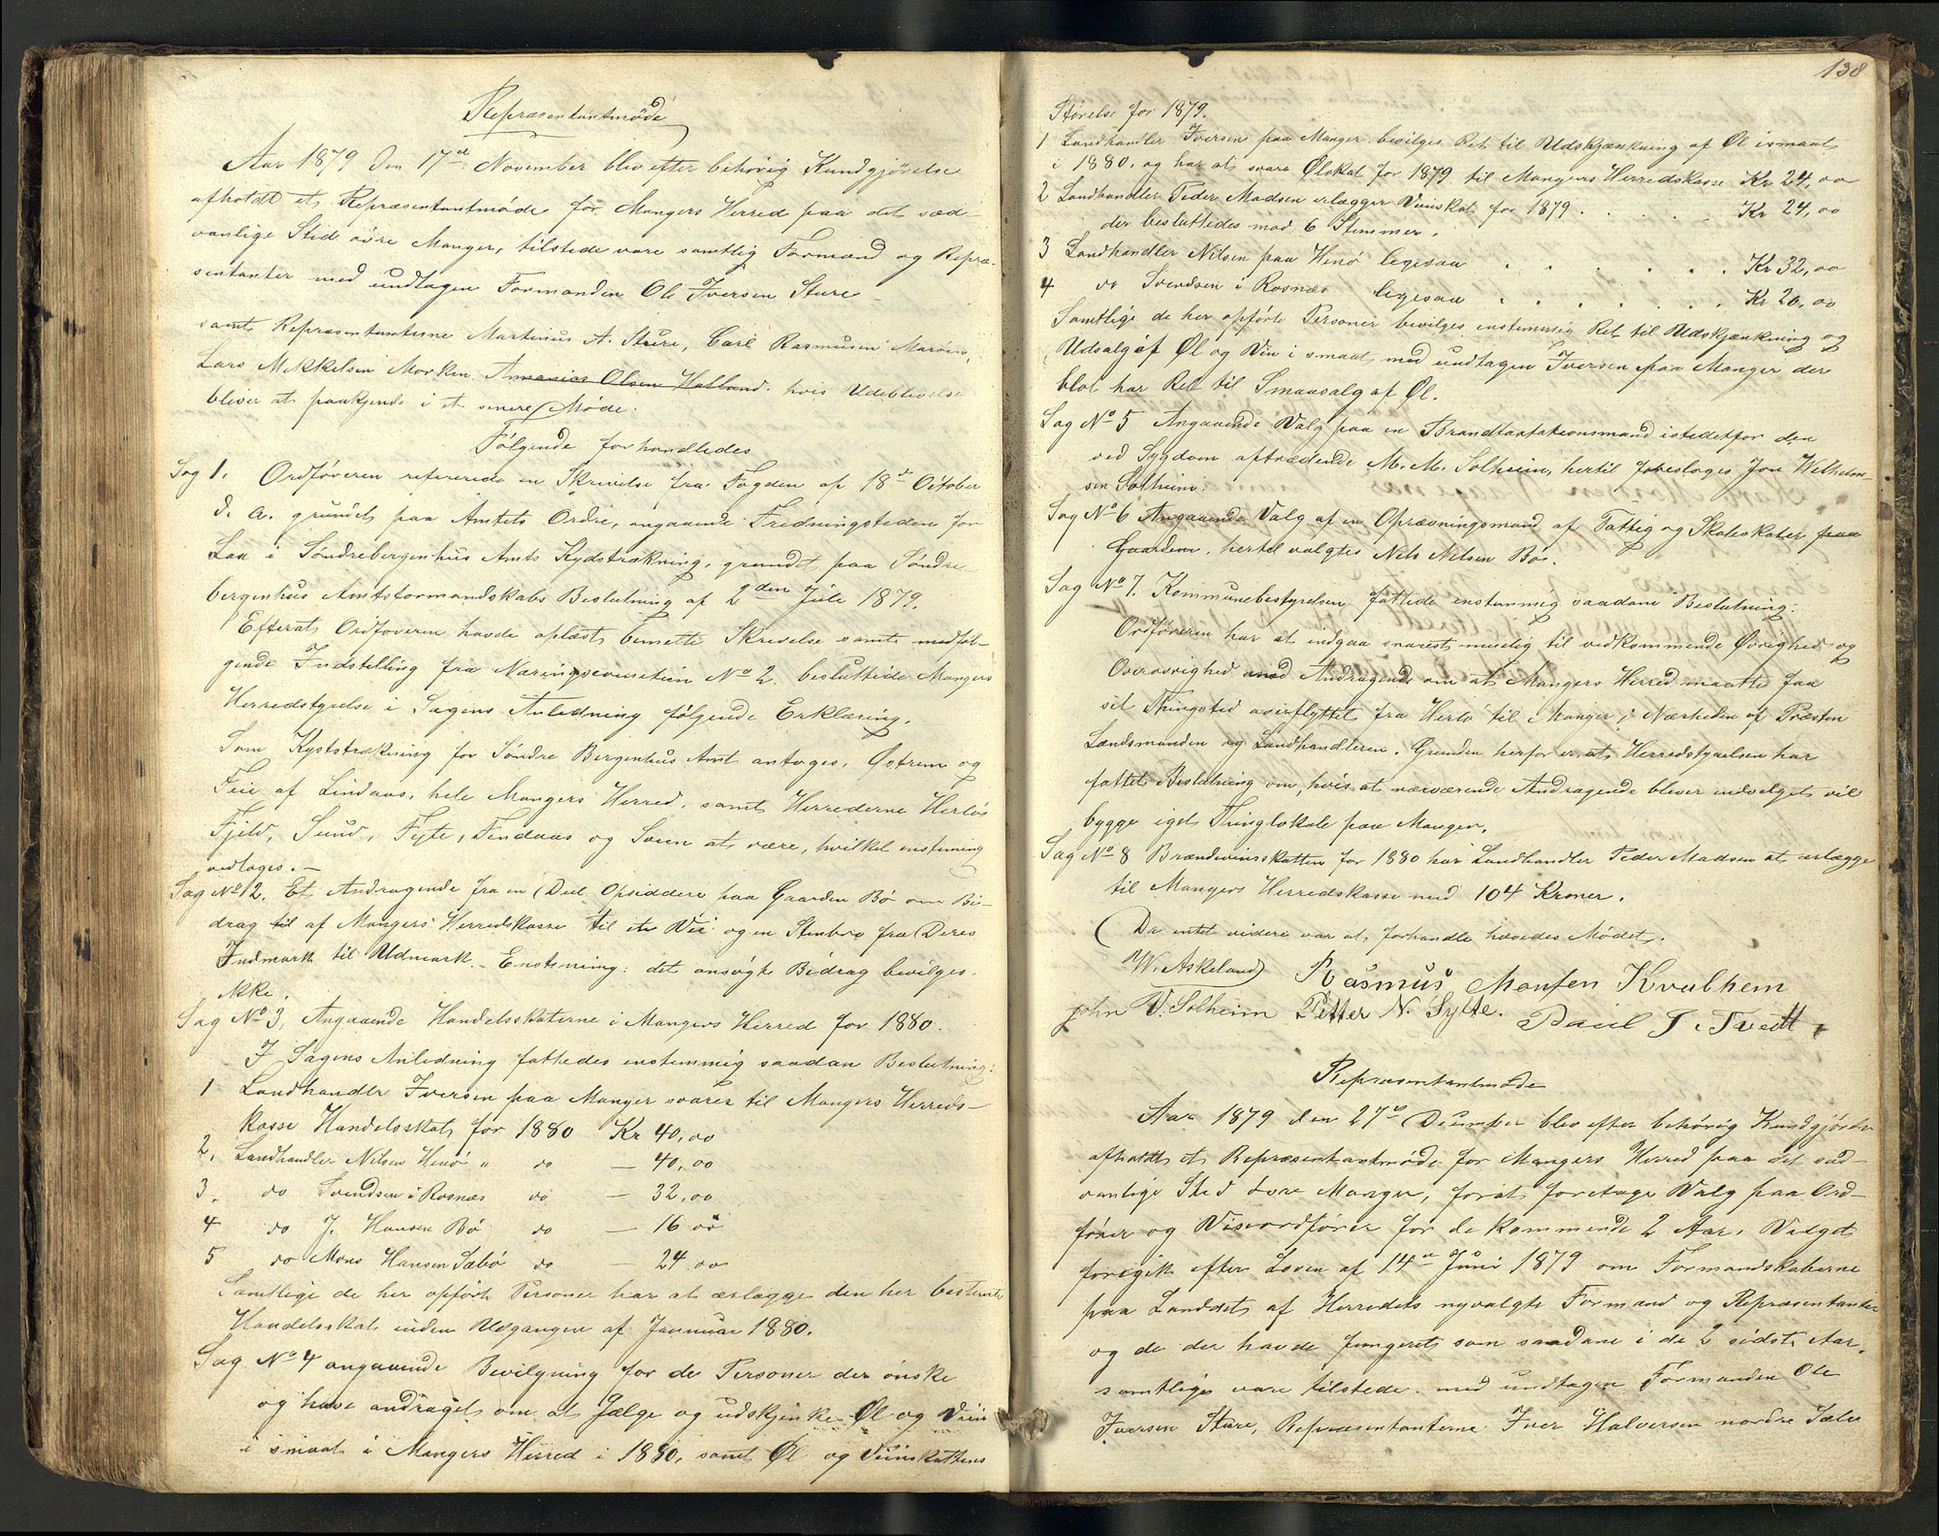 Repræsentantmøde
Aar 1879 den 17de November blev efter behørig Kundgjørelse
afholdt et Repræsentantmøde for Mangers Herred paa det sæd-
vanlige Sted øvre Manger, tilstede vare samtlig Formænd og Repræ-
sentanter med undtagen Formanden Ole Iversen Sture
samt Repræsentanterne Martinus A. Sture, Carl Rasmusen Marøen,
Lars Mikkelsen Morken Ananias Olsen Hatland. hvis Udeblivelse
bliver at paakjende i et senere Møde.
Følgende forhandledes
Sag 1. Ordføreren refererede en Skrivelse fra Fogden af 18de October
d. a. grundet paa Amtets Ordre, angaaende Fredningstiden for
Lax i Søndrebergenhus Amts Kyststrækning, grundet paa Søndre-
bergenhus Amtsformandskabs Beslutning af 2den Juli 1879.
Efterat Ordføreren havde oplæst bemeldte Skrivelse samt medføl-
gende Indstilling fra Næringscomiteen No 2. besluttede Mangers
Herredstyrelse i Sagens Anledning følgende Erklæring.
Som Kyststrækning for Søndre Bergenhus Amt antages, Østrem og
Feie af Lindaas, hele Mangers Herred, samt Herrederne Herlø
Fjeld, Sund, Fitje, Findaas og Sveen at være, hvilket enstemmig
vedtoges. —
Sag No 2. Et Andragende fra en Deel Opsiddere paa Gaarden Bø om Bi-
drag til af Mangers Herredskasse til et Vei og en Stenbro fra Deres
Indmark til Udmark. Enstemmig: det ansøgte Bidrag bevilges
ikke.
Sag No 3, Angaaende Handelsskatterne i Mangers Herred for 1880.
I Sagens Anledning fattedes enstemmig saadan Beslutning:
1 Landhandler Iversen paa Manger svarer til Mangers Herreds-
kasse Handelsskat for 1880 Kr 40,00
2, Landhandler Nilsen Henø " do — 40,00
3. do Svendsen i Rosnæs do — 32,00
4 do J. Hansen Bø do — 16 00
5 do Mons Hansen Sæbø do — 24,00
Samtlige de her opførte Personer har at erlægge den her bestemte
Handelsskat inden Udgangen af Januar 1880.
Sag No 4 angaaende Bevilgning for de Personer der ønske
og have andraget om at sælge og udskjenke Øl og Viin
i smaat i Mangers Herred i 1880, samt Øl og Viinskattens
138
Størelse for 1879.
1 Landhandler Iversen paa Manger bevilges Ret til Udskjænkning af Øl i smaat
i 1880, og har at svare Ølskat for 1879 til Mangers Herredskasse Kr 24,00
2 Landhandler Peder Madsen erlægger Viinskat for 1879 . . . . Kr 24,00
der besluttedes med 6 Stemmer.
3 Landhandler Nilsen paa Henø ligesaa . . . . . . Kr 32,00
4 do Svendsen i Rosnæs ligesaa . . . . . . Kr 20,00
Samtlige de her opførte Personer bevilges enstemmig Ret til Udskjænkning og
Udsalg af Øl og Vin i smaat, med undtagen Iversen paa Manger der
blot har Ret til Smaasalg af Øl.
Sag No 5 Angaaende Valg paa en Brandtaxtationsmand istedetfor den
ved Sygdom aftrædende M. M. Solheim, hertil foreslages Jon Wilhelm-
sen Solheim.
Sag No 6 Angaaende Valg af en Opkrævningsmand af Fattig og Skoleskatter paa
Gaarden, hertil valgtes Nils Nilsen Bø.
Sag No 7. Kommunebestyrelsen fattede enstemmig saadan Beslutning:
Ordføreren har at indgaa snarest muelig til vedkommende Øvrighed og
Overøvrighed med Andragende om at Mangers Herred maatte faa
sit Thingsted overflyttet fra Herlø til Manger i Nærheden af Præsten
Lændsmanden og Landhandleren. Grunden herfor er at Herredstyrelsen har
fattet Beslutning om, hvis at nærværende Andragende bliver indvelget vil
bygge eget Thinglokale paa Manger.
Sag No 8 Brændevinsskatten for 1880 har Landhandler Peder Madsen at erlægge
til Mangers Herredskasse med 104 Kroner.
Da intet videre var at forhandle hævedes Mødet.
W. Askeland Rasmus Monsen Kvalhem
John V. Solheim Petter N. Sylte. Paul J. Tvedt,
Repræsentantmøde
Aar 1879 den 27de December blev efter behørig Kundgjørelse
afholdt et Repræsentantmøde for Mangers Herred paa det sæd-
vanlige Sted øvre Manger, for at foretage Valg paa Ord-
fører og Viseordfører for de kommende 2 Aar. Valget
foregik efter Loven af 14de Juni 1879 om Formandskaberne
paa Landet af Herredets nyvalgte Formænd og Repræsentanter
og de der havde fungeret som saadane i de 2 sidste Aar,
samtlige vare tilstede. med undtagen Formanden Ole
Iversen Sture, Repræsentanterne Iver Halversen nordre Sæbø